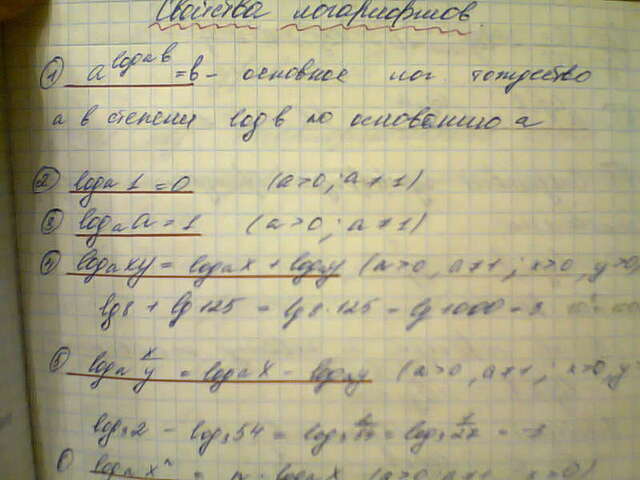 Свойства логарифмов.
① a^(log_a b) = b – основное лог. тождество
a в степени log b по основанию a
② log_a 1 = 0 (a>0; a≠1)
③ log_a a = 1 (a>0; a≠1)
④ log_a xy = log_a x + log_a y (a>0, a≠1; x>0, y>0
lg 8 + lg 125 = lg 8·125 = lg 1000 = 3
⑤ log_a x/y = log_a x - log_a y (a>0, a≠1; x>0, y>
log₃ 2 - log₃ 54 = log₃ 2/54 = log₃ 1/27 = -3
log_a xⁿ = n · log_a x (a>0, a≠1, x>0)